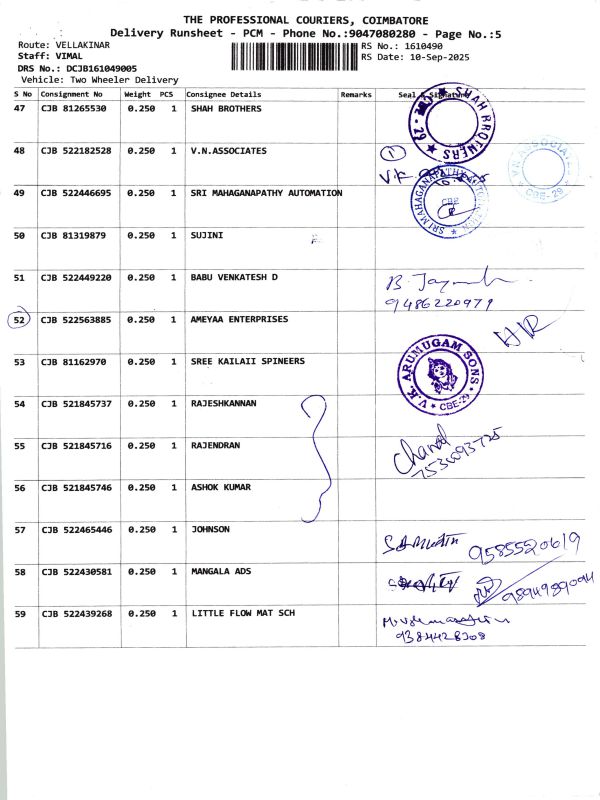 THE PROFESSIONAL COURIERS, COIMBATORE
Delivery Runsheet - PCM - Phone No.:9047080280 - Page No.:5
Route: VELLAKINAR RS No.: 1610490
Staff: VIMAL RS Date: 10-Sep-2025
DRS No.: DCJB161049005
Vehicle: Two Wheeler Delivery
S No Consignment No Weight PCS Consignee Details Remarks Seal & Signature
47 CJB 81265530 0.250 1 SHAH BROTHERS
SHAH BROTHERS
48 CJB 522182528 0.250 1 V.N.ASSOCIATES 1
V.N.ASSOCIATES CBE-29
49 CJB 522446695 0.250 1 SRI MAHAGANAPATHY AUTOMATION
SRI MAHAGANAPATHY AUTOMATION CBE
50 CJB 81319879 0.250 1 SUJINI
51 CJB 522449220 0.250 1 BABU VENKATESH D
9486220979
52 CJB 522563885 0.250 1 AMEYAA ENTERPRISES
53 CJB 81162970 0.250 1 SREE KAILAII SPINEERS
V.K. ARUMUGAM SONS CBE-29
54 CJB 521845737 0.250 1 RAJESHKANNAN
55 CJB 521845716 0.250 1 RAJENDRAN
7530093725
56 CJB 521845746 0.250 1 ASHOK KUMAR
57 CJB 522465446 0.250 1 JOHNSON
9585520619
58 CJB 522430581 0.250 1 MANGALA ADS
9894989094
59 CJB 522439268 0.250 1 LITTLE FLOW MAT SCH
9384428208